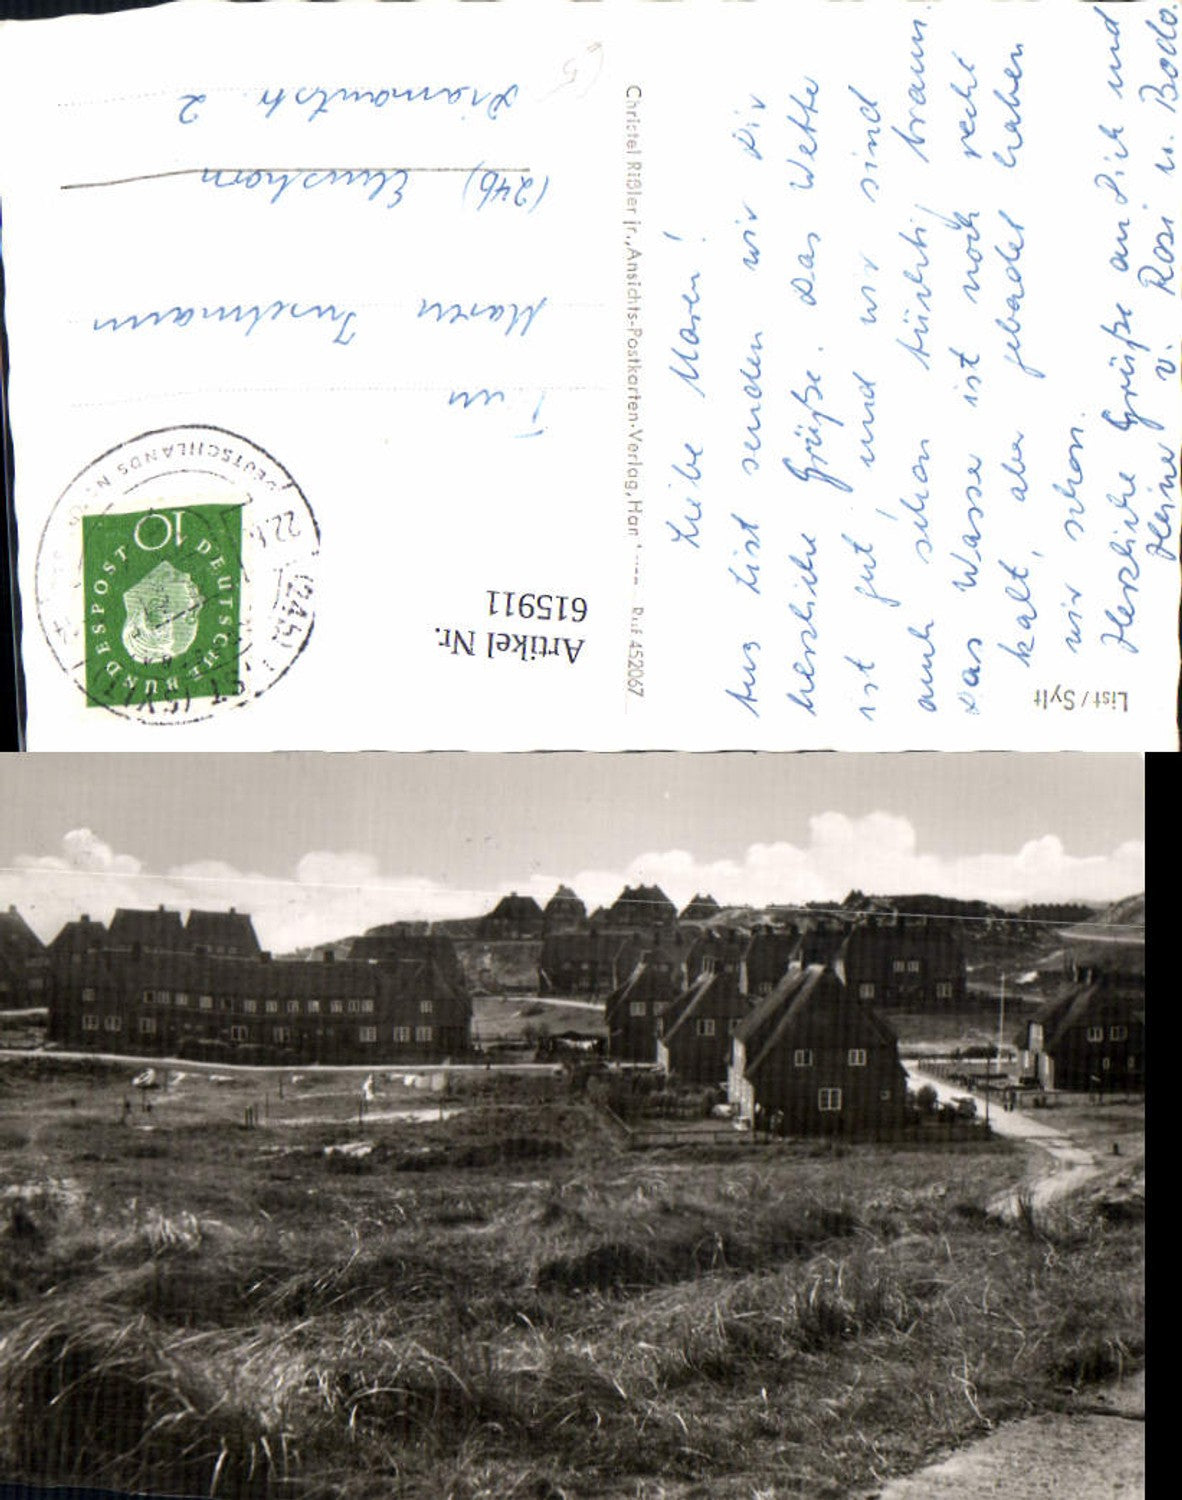 List / Sylt
Liebe Maren!
Aus List senden wir Dir
herzliche Grüße. Das Wetter
ist gut, und wir sind
auch schon tüchtig braun.
Das Wasser ist noch recht
kalt, aber gebadet haben
wir schon.
Herzliche Grüße an Dich und
Heine v. Rosi u. Bodo.
Christel Rißler jr., Ansichts-Postkarten-Verlag, Ruf 452067
Artikel Nr.
615911
DEUTSCHE BUNDESPOST
10
(24b) LIST (SYLT)
22.6
DEUTSCHLANDS
Maren Inselmann
(24b) Elmshorn
Diamantstr. 2